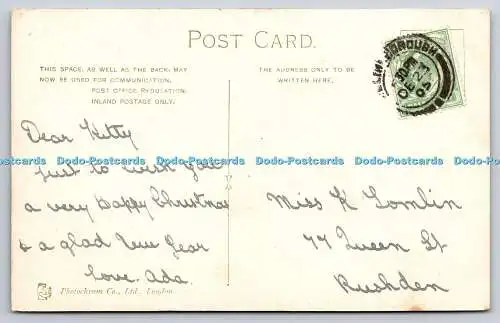 POST CARD.
THIS SPACE, AS WELL AS THE BACK, MAY
NOW BE USED FOR COMMUNICATION.
POST OFFICE REGULATION.
INLAND POSTAGE ONLY.
THE ADDRESS ONLY TO BE
WRITTEN HERE.
Dear Kitty
just to wish you
a very Happy Christmas
& a glad New Year
love. Ada.
Miss K Tomlin
77 Queen St
Rushden
Photochrom Co., Ltd., London.
Dodo-Postcards Dodo-Postcards Dodo-Postcards Dodo-Postcards Dodo-Postcards Dodo-Postcards